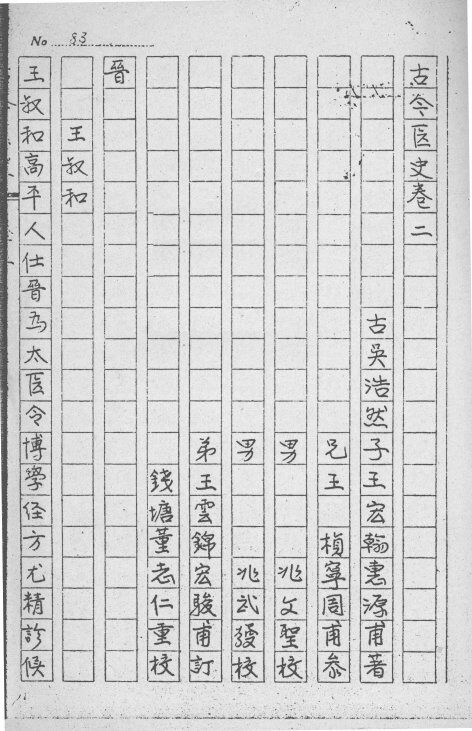 No 83
古今医史卷二
古吳浩然子王宏翰惠源甫著
兄王 楨寧周甫參
男 兆文聖校
男 兆武發校
弟王雲錦宏駿甫訂
錢塘董志仁重校
晉
王叔和
王叔和高平人仕晉為太医令博學经方尤精診候